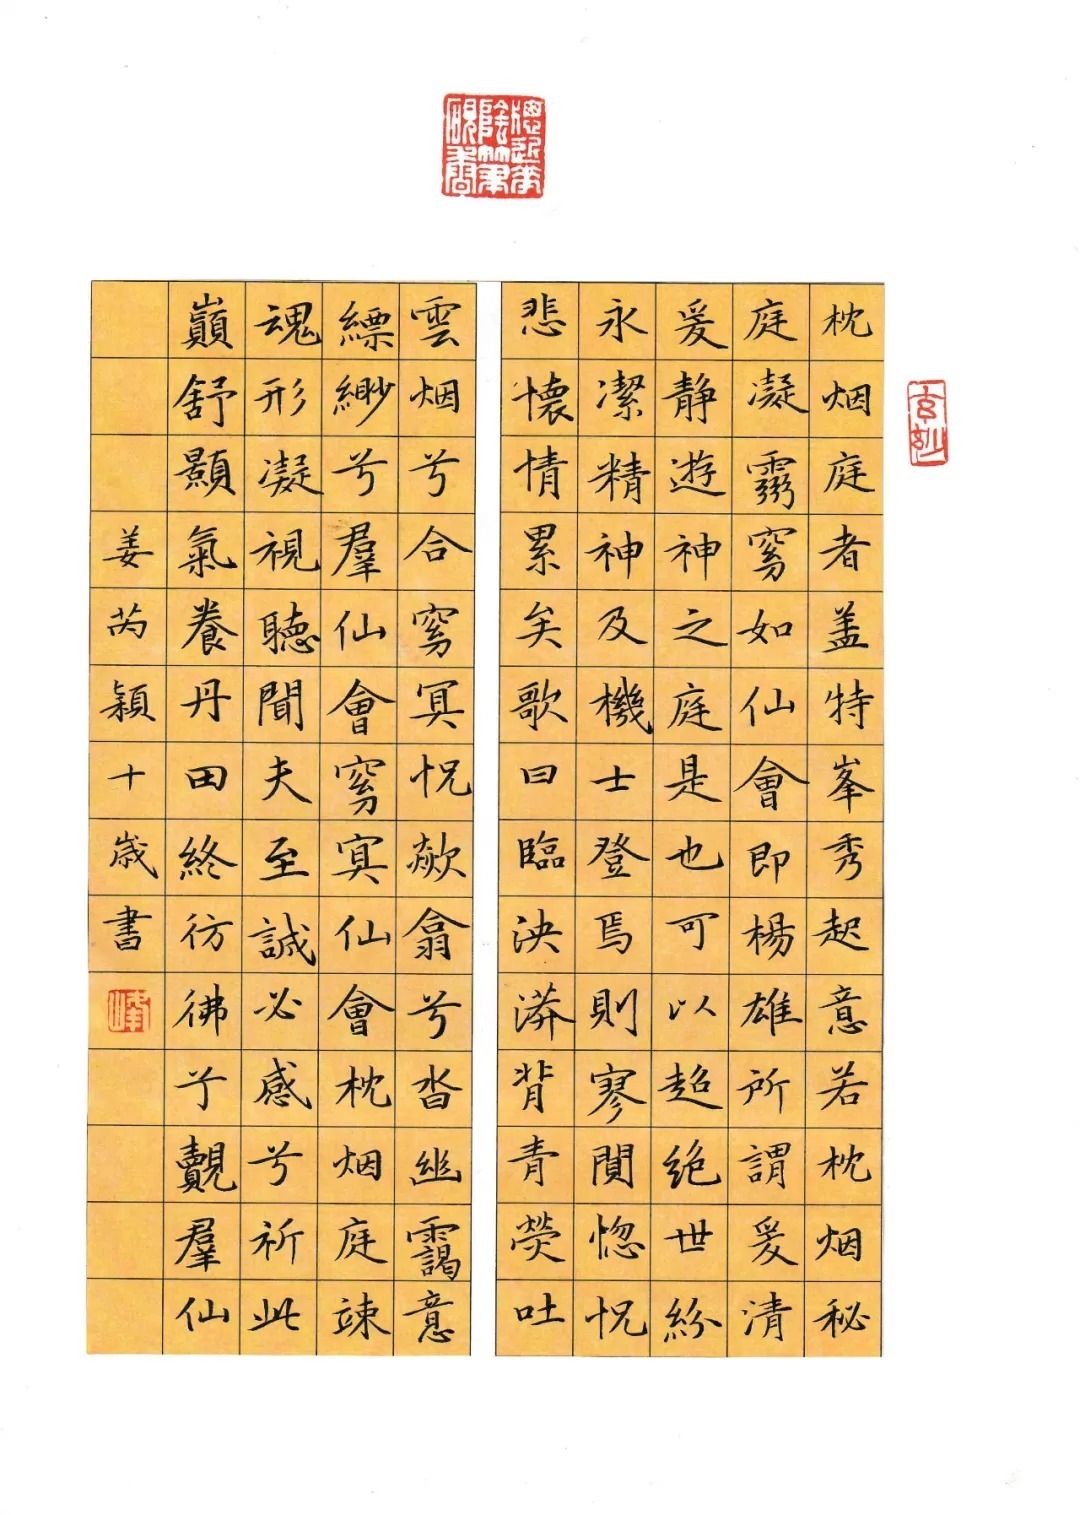 枕烟庭者盖特峯秀起意若枕烟秘
庭凝靈窅如仙會即楊雄所謂爰清
爰静遊神之庭是也可以超绝世紛
永潔精神及機士登焉則寥闃惚怳
悲懷情累矣歌曰臨泱漭背青熒吐
雲烟兮合窅冥怳欻翕兮沓幽靄意
縹緲兮羣仙會窅冥仙會枕烟庭竦
魂形凝視聽聞夫至誠必感兮祈此
巔舒顥氣養丹田終彷彿兮覿羣仙
姜芮穎十歲書
玄妙
峰